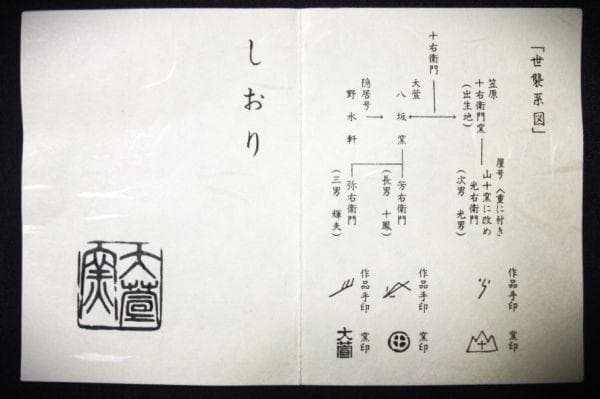 「世襲系図」
屋号〈重に付き
山十窯に改め
光右衛門
(次男 光男)
笠原
十右衛門窯
(出生地)
十右衛門
大萱
八坂窯
芳右衛門
(長男 十鳳)
弥右衛門
(三男 輝夫)
隠居号
野水軒
作品手印
窯印
作品手印
窯印
作品手印
窯印
大萱
しおり
大萱窯